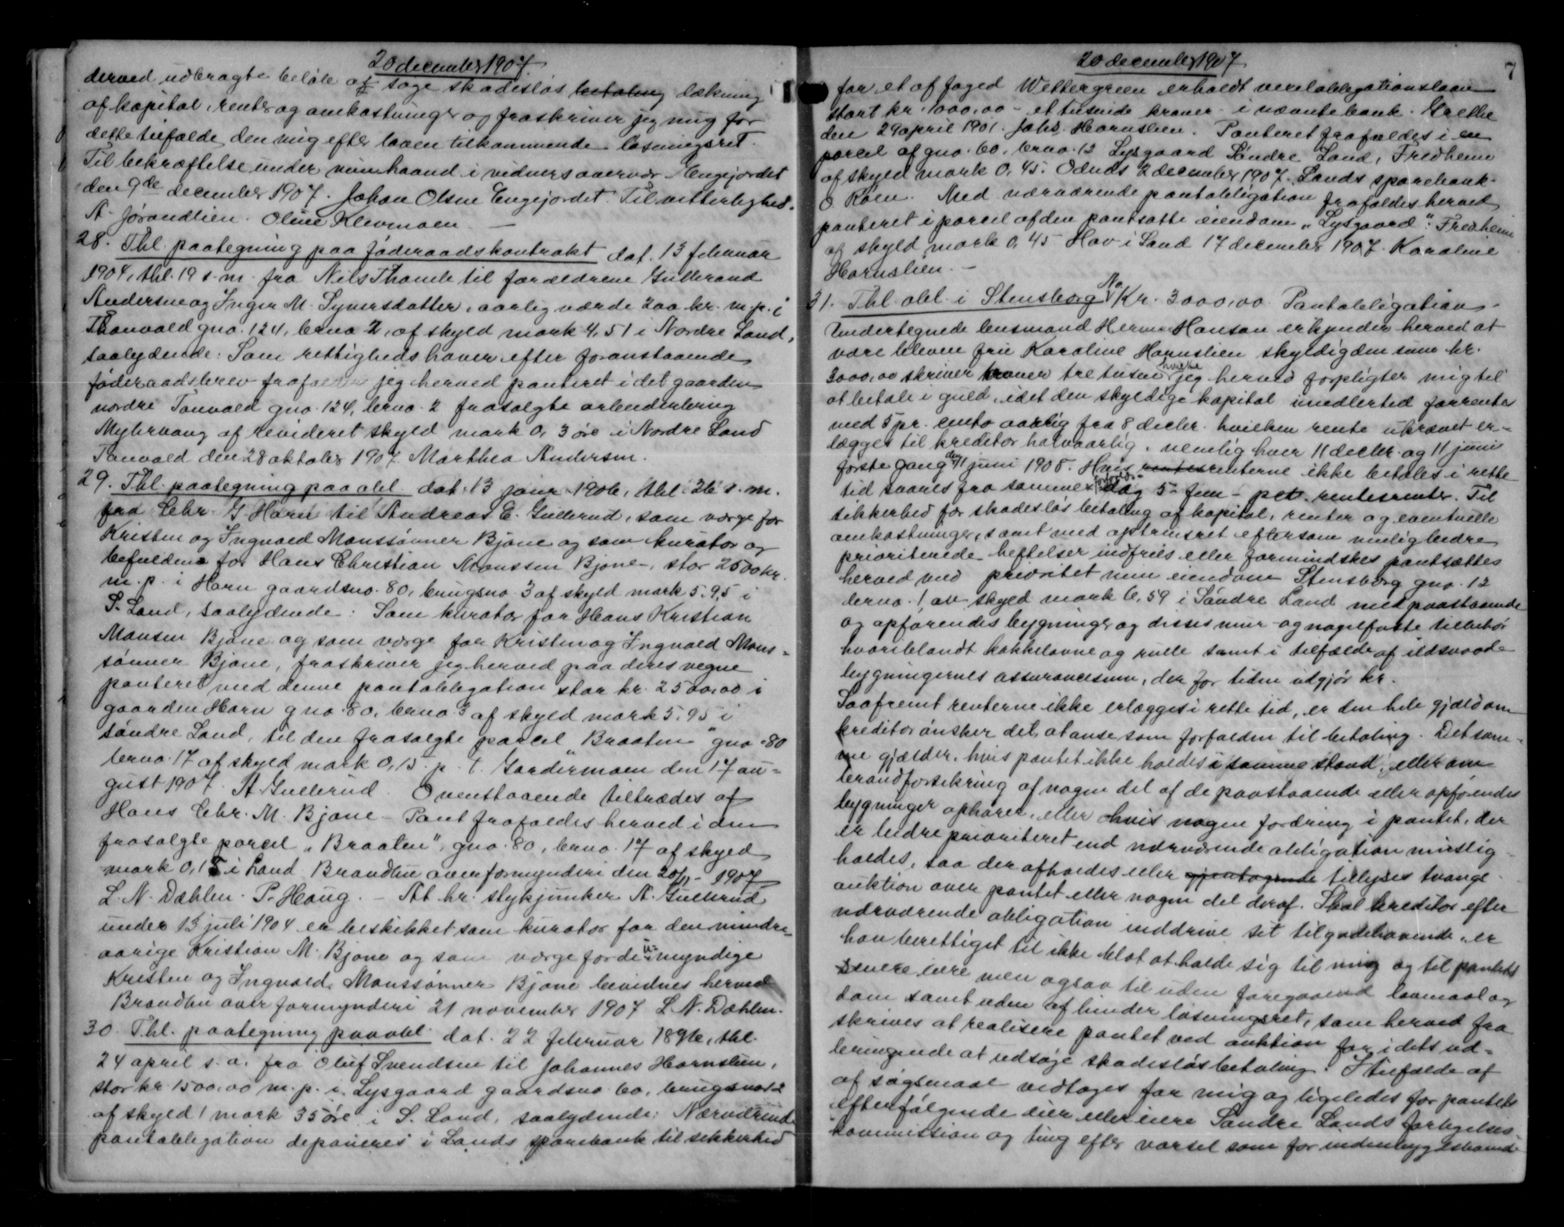 20 december 1907.
derved udbragte beløb at søge skadesløs betaling lækning
af kapital, renter og omkostninger og fraskriver jeg mig for
dette tilfælde den mig efter loven tilkommende løsningsret.
Til bekræftelse under min haand i vidners overvær. Engejordet
den 9de december 1907. Johan Olsen Engejordet. Til vitterlighed.
A. Jørandlien. Oline Klevmoen
28. Thl. paategning paa føderaadskontrakt dat. 13 februar
1904, thl. 19 s.m. fra Nils Thomle til forældrene Gulbrand
Andersen og Inger M. Syversdatter, aarlig værde 200 kr. m.p. i
Tonvold gno. 124, brno 2, af skyld mark 4,51 i Nordre Land,
saalydende: Som rettighedshaver efter foranstaaende
føderaadsbrev frafalder jeg herved panteret i det gaarden
nordre Tonvold gno. 124, brno. 2 frasolgte arbeiderbrug
Myhrvang af revideret skyld mark 0, 3 øre i Nordre Land
Tonvold den 28 oktober 1907 Marthea Andersen.
29. Thl. paategning paa obl. dat. 13 januar 1906, thl. 26 s.m.
fra Chr. G. Horn til Andreas E. Gullerud, som værge for
Kristen og Ingvald Monssønner Bjone og som kurator og
befuldm. for Hans Christian Monssen Bjone, stor 2500 kr.
m.p. i Horn gaardsno. 80, brugsno. 3 af skyld mark 5.95 i
S. Land, saalydende: Som kurator for Hans Kristian
Monsen Bjone og som værge for Kristen og Ingvald Mons-
sønner Bjone, fraskriver jeg herved paa deres vegne
panteret med denne pantobligation stor kr. 2500,00 i
gaarden Horn gno. 80, brno 3 af skyld mark 5.95 i
søndre Land, til den frasolgte parcel "Braaten" gno. 80
brno. 17 af skyld mark 0,15. p.t. Gardermoen den 17 au-
gust 1907 A. Gullerud. Ovenstaaende tiltrædes af
Hans Chr. M. Bjone - Pant frafaldes herved i den
frasolgte parcel "Braaten", gno. 80, brno. 17 af skyld
mark 0,15 i Land Brandbu overformynderi den 20/11 - 1907
L. N. Dæhlen. P. Haug. - At hr. stykjunker A. Gullerud
under 13 juli 1904 er beskikket som kurator for den mindre-
aarige Kristian M. Bjone og som værge for de u-myndige
Kristen og Ingvald Monssønner Bjone bevidnes herved
Brandbu overformynderi 21 november 1907 L. N. Dæhlen.
30. Thl. paategning paa obl. dat. 22 februar 1896, thl.
24 april s.a. fra Oluf Svendsen til Johannes Hornslien,
stor kr. 1500,00 m.p. i Lysgaard gaardsno 60, brugsno 12
af skyld 1 mark 35 øre i S. Land, saalydende: Nærværende
pantobligation deponeres i Lands sparebank til sikkerhed
20 december 1907
7
for et af foged Wettergreen erholdt vexelobligationslaan
stort kr. 1000,00 - et tusinde kroner - i nævnte bank. Grette
den 29 april 1901. Johs. Hornslien. Panteret frafaldes i en
parcel af gno. 60, brno. 12 Lysgaard Søndre Land, Fredheim
af skyld mark 0,45. Odnes 2 december 1907. Lands sparebank.
O Røen. Med nærværende pantobligation frafaldes herved
panteret i parcel af den pantsatte eiendom "Lysgaard": Fredheim
af skyld mark 0,45 Hov i Land 17 december 1907. Karoline
Hornslien. -
31. Thl. obl. i Stensborg No Kr. 3000,00 Pantobligation.
Undertegnede lensmand Herman Hanson erkjender herved at
være bleven fru Karoline Hornslien skyldig den sum kr.
3000,00 skriver kroner tre tusinde hvilke jeg herved forpligter mig til
at betale i guld, idet den skyldige kapital imedlertid forrentes
med 5 pr. cento aarlig fra 8 decbr. hvilken rente ukrævet er-
lægges til kreditor halvaarlig, nemlig hver 11 decbr. og 11 juni
første gang den 11 juni 1908. Hvis rentes renterne ikke betales i rette
tid svares fra samme forfalds- dag 5- fem - pct. rentesrenter. Til
sikkerhed for skadesløs betaling af kapital, renter og eventuelle
omkostninger, samt med optrinsret eftersom mulig bedre
prioriterede heftelser indfries eller formindskes pantsættes
herved med prioritet min eiendom Stensborg gno. 12
brno. 1 av skyld mark 6,59 i Søndre Land med paastaaende
og opførendes bygninger og disses mur- og nagelfaste tilbehør
hvoriblandt kakkelovne og rulle samt i tilfælde af ildsvaade
bygningernes assurancesum, der for tiden udgjør kr.
Saafremt renterne ikke erlægges i rette tid, er den hele gjæld om
kreditor ønsker det, at anse som forfalden til betaling. Det sam-
me gjælder, hvis pantet ikke holdes i samme stand, eller om
brandforsikring af nogen del af de paastaaende eller opførendes
bygninger ophører, eller hvis nogen fordring i pantet, der
er bedre prioriteret end nærværende obligation mislig-
holdes, saa der afholdes eller tillyses tvangs-
auktion over pantet eller nogen del deraf. Skal kreditor efter
nærværende obligation inddrive sit tilgodehavende, er
han berettiget til ikke blot at holde sig til mig og til pantets
senere eiere men ogsaa til uden foregaaend lovmaal og
dom samt uden af hinder løsningsret, som herved fra
skrives at realisere pantet ved auktion for i dets ud-
bringende at udsøge skadesløs betaling. I tilfælde af
af søgsmaal vedtages for mig og ligeledes for pantets
efterfølgende eier eller eiere Søndre Lands forligelses-
kommission og ting efter varsel som for indenbygdsboende